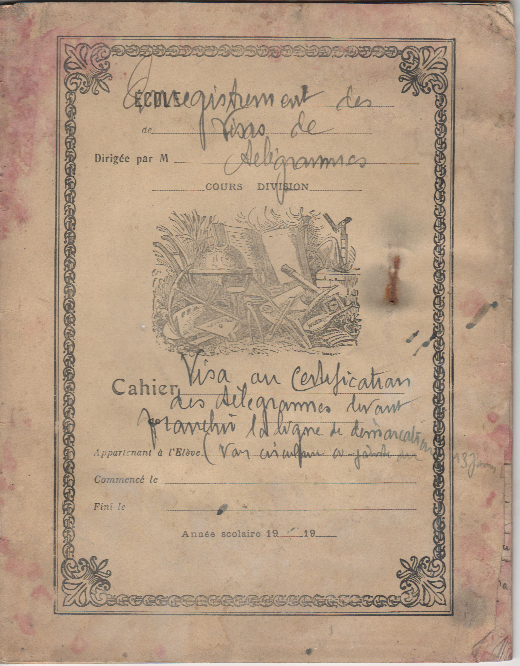 ÉCOLE
Enregistrement des
de
Visas de
Dirigée par M
télégrammes
COURS DIVISION
Cahier
Visa ou Certification
des télégrammes devant
franchir la ligne de démarcation
Appartenant à l'Elève
(voir circulaire
Commencé le
Fini le
Année scolaire 19 19